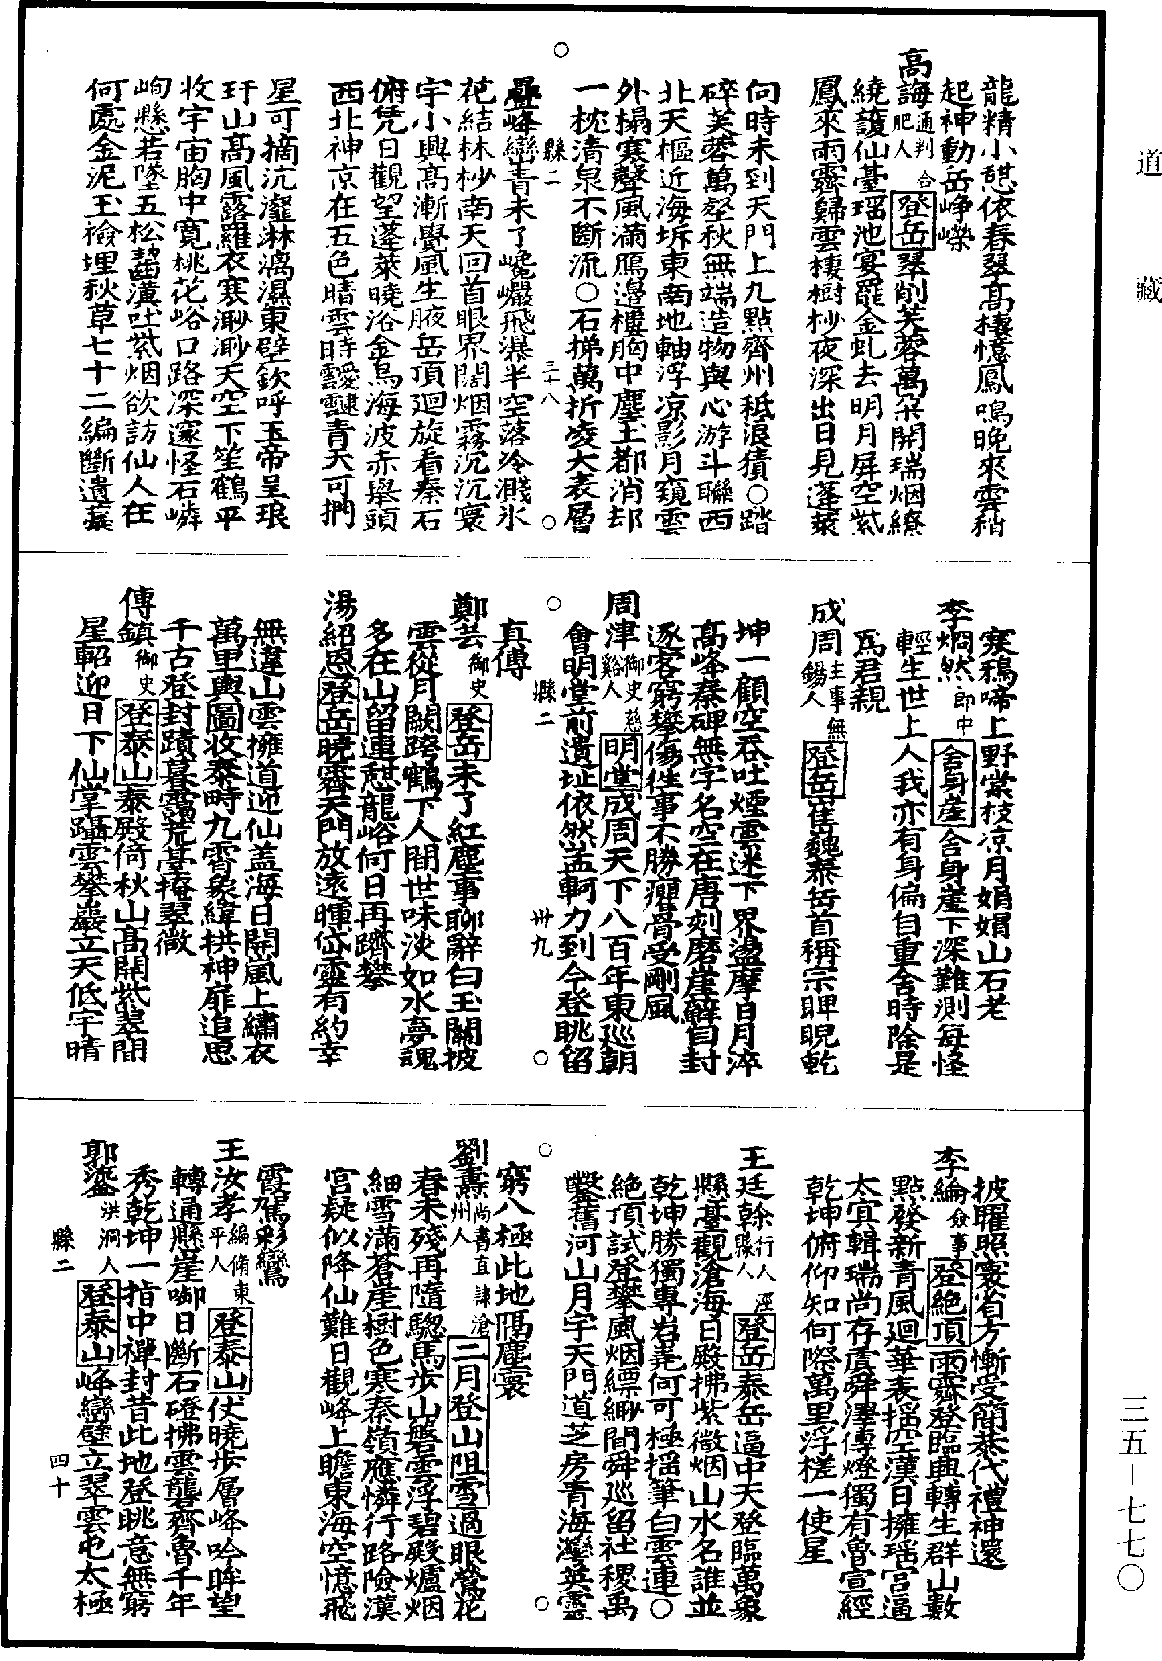 道藏
龍精小憩依春翠高樓憶鳳鳴晚來雲稍
起神動岳崢嶸
高誨通判合肥人登岳翠削芙蓉萬朶開瑞烟繚
繞護仙臺瑶池宴罷金虬去明月屏空紫
鳳來雨霽歸雲棲樹杪夜深出日見蓬萊
向時未到天門上九點齊州秪浪猜○踏
碎芙蓉萬壑秋無端造物與心游斗聯西
北天樞近海坼東南地軸浮凉影月窺雲
外榻寒聲風滿鴈邊樓胸中塵土都消却
一枕清泉不斷流○石梯萬折凌大表層
縣二
三十八
疊峰巒青未了巉巖飛瀑半空落冷濺氷
花結林杪南天回首眼界闊烟霧沉沉寰
宇小興高漸覺風生腋岳頂迴旋看秦石
俯凭日觀望蓬萊曉浴金烏海波赤舉頭
西北神京在五色晴雲時靉靆青天可捫
星可摘沆瀣淋漓濕東壁欽呼玉帝呈琅
玕山高風露羅衣寒渺渺天空下笙鶴平
收宇宙胸中寬桃花峪口路深邃怪石嶙
峋懸若墜五松鬅潢吐紫烟欲訪仙人在
何處金泥玉檢埋秋草七十二編斷遺藁
寒鴉啼上野棠枝凉月娟娟山石老
李炯然郎中舍身崖舍身崖下深難測每怪
輕生世上人我亦有身偏自重舍時除是
爲君親
成周主事無錫人登岳崔巍泰岳首稱宗睥睨乾
坤一顧空吞吐煙雲迷下界盪摩日月淬
高峰秦碑無字名空在唐刻磨崖蘚自封
逐客窮攀傷徃事不勝癯骨受剛風
周津御史慈谿人明堂成周天下八百年東巡朝
會明堂前遺址依然孟軻力到今登眺留
縣二
卅九
真傳
鄭芸御史登岳未了紅塵事聊辭白玉關披
雲從月闕跨鶴下人間世味淡如水夢魂
多在山留連憇龍峪何日再躋攀
湯紹恩登岳曉霽天門放遠暉岱靈有約幸
無違山雲擁道迎仙盖海日開風上繡衣
萬里輿圖收泰畤九霄象緯拱神扉追思
千古登封蹟暮靄荒臺掩翠微
傅鎮御史登泰山泰殿倚秋山高開紫翠間
星軺迎日下仙掌躡雲攀巖立天低宇晴
披曜照寰省方慚受簡恭代禮神還
李綸僉事登絶頂雨霽登臨興轉生群山數
點發新青風迴華表揺空漢日擁瑶宫逼
太宜輯瑞尚存虞舜澤傳燈獨有魯宣經
乾坤俯仰知何際萬里浮槎一使星
王廷榦行人涇縣人登岳泰岳逼中天登臨萬象
懸臺觀滄海日殿拂紫微烟山水名誰並
乾坤勝獨專岩嶤何可極揺筆白雲連○
絶頂試登攀風烟縹緲間舜巡留社稷禹
鑿舊河山月宇天門道芝房青海灣英靈
窮八極此地隔塵寰
劉燾尚書直隸滄州人二月登山阻雪過眼鶯花
春未殘再隨驄馬步山磐雲浮碧殿爐烟
細雪滿蒼崖樹色寒秦嶺應憐行路險漢
宫疑似降仙難日觀峰上瞻東海空憶飛
霞駕彩鸞
王汝孝編脩東平人登泰山伏曉步層峰吟眸望
轉通懸崖啣日斷石磴拂雲礱齊魯千年
秀乾坤一指中禪封昔此地登眺意無窮
郭鋈洪洞人登泰山峰巒壁立翠雲屯太極
縣二
四十
三五—七七〇